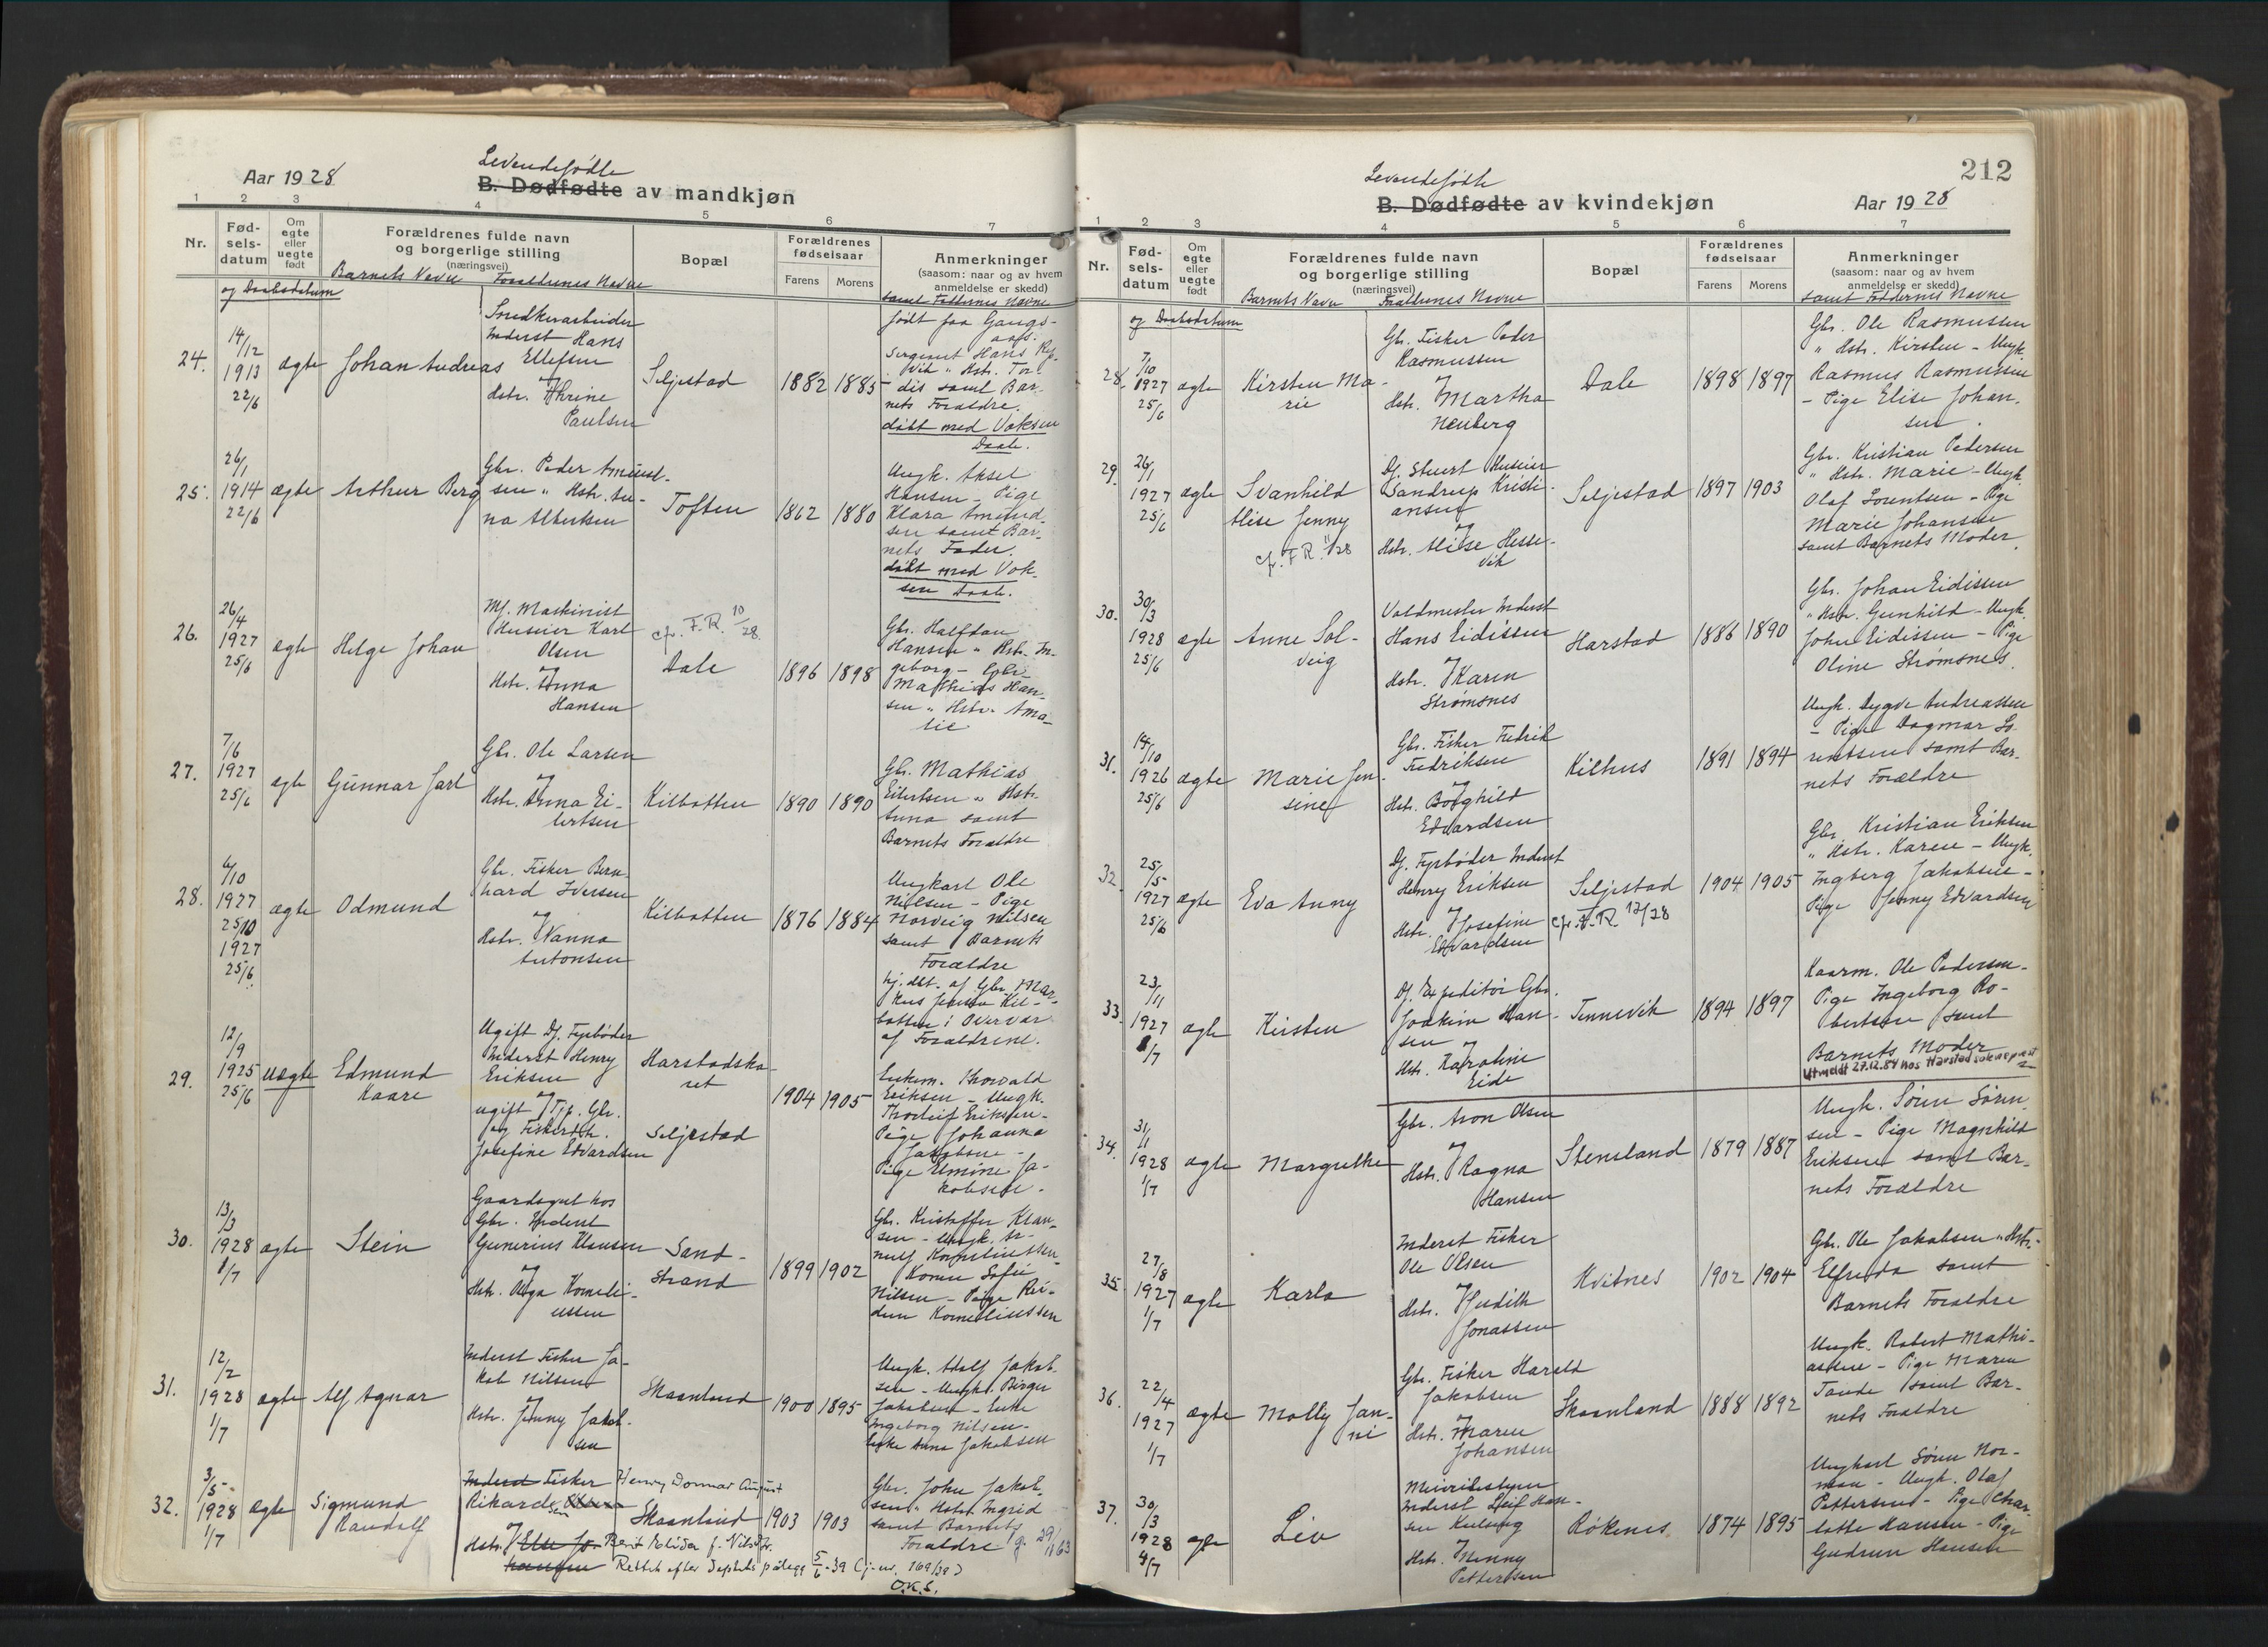 Aar 1928
Levendefødte
B. Dødfødte av mandkjøn
1 2 3 4 5 6 7
Nr.
Fødselsdatum
Om egte eller uegte født
Forældrenes fulde navn
og borgerlige stilling
(næringsvei)
Bopæl
Forældrenes fødselsaar
Farens Morens
Anmerkninger
(saasom: naar og av hvem
anmeldelse er skedd)
og Daabsdatum
Barnets Navn Forældrenes Navne
samt Faddernes Navne
24.
14/12
1913
22/6
ægte
Johan Andreas
Inderst Hans
Ellefsen
og
Hstr. Thrine
Paulsen
Seljestad
1882 1885
født paa Gangs-
aas.
Sergeant Hans
Vik " Hstr. Tor-
dis samt Bar-
nets Forældre.
døbt med Voksen
Daab.
25.
26/1
1914
22/6
ægte
Arthur Berg
Gbr. Peder Amund-
sen " Hstr. An-
na Albertsen
Toften
1862 1880
Ungk. Aksel
Hansen - Pige
Klara Amund-
sen samt Bar-
nets Fader.
døbt med Vok-
sen Daab.
26.
26/4
1927
25/6
ægte
Helge Johan
Mf. Maskinist
Huseier Karl
Olsen
og
Hstr. Anna
Hansen
cfr. F.R. 10/28
Dale
1896 1898
Gbr. Halfdan
Hansen " Hstr. In-
geborg - Gbr.
Mathias Han-
sen " Hstr. Ama-
lie
27.
7/6
1927
25/6
ægte
Gunnar Jarl
Gbr. Ole Larsen
og
Hstr. Anna Ei-
lertsen
Kilbotten
1890 1890
Gbr. Mathias
Eilertsen " Hstr.
Anna samt
Barnets Forældre
28.
6/10
1927
25/10
1927
25/6
ægte
Odmund
Gbr. Fisker Bern-
hard Iversen
og
Hstr. Nanna
Antonsen
Kilbotten
1876 1884
Ungkarl Ole
Nielsen - Pige
Norveig Nilsen
samt Barnets
Forældre
hj. dbt. af Gbr. Mar-
kus Jensen Kil-
botten i Overvær
af Forældrene.
29.
12/9
1925
25/6
uægte
Edmund
Kaare
Ugift Df. Fyrbøder
Inderst Henry
Eriksen
og
ugift Tjp. Gbr.
og Fiskerdtr.
Josefine Edvardsen
Harstadsko-
ret
Seljestad
1904 1905
Enkem. Thorvald
Eriksen - Ungk.
Thorleif Eriksen -
Pige Johanna
Jakobsen -
Pige Elmine Ja-
kobsen.
30.
13/3
1928
1/7
ægte
Stein
Gaardsgut hos
Gbr. Inderst
Gunerius Klausen
og
Hstr. Olga Korneli-
ussen
Sand-
strand
1899 1902
Gbr. Kristoffer Klau-
sen - Ungk. Ar-
nulf Korneliussen
Konen Sofie
Nilsen - Pige Rei-
dun Korneliussen
31.
12/2
1928
1/7
ægte
Alf Agnar
Inderst Fisker Ja-
kob Nilsen
og
Hstr. Jenny Jakob-
sen
Skaanland
1900 1895
Ungk. Adolf Jakob-
sen - Ungk. Birger
Jakobsen - Enke
Ingeborg Nilsen -
Enke Anna Jakobsen
32.
3/5
1928
1/7
ægte
Sigmund
Randolf
Inderst Fisker Henry Donnar August
Rikardsen
og
Hstr. Else Jo- Berit Elida f. Nilsdtr.
hansen Rettet efter Deptets pålegg 5/6-39 (j-nr. 169/39)
O.K.S.
Skaanland
1903 1903
Gbr. John Jakob-
sen " Hstr. Ingrid
samt Barnets
Forældre
g. 29/1163
212
Levendefødte
B. Dødfødte av kvindekjøn
Aar 1928
1 2 3 4 5 6 7
Nr.
Fødselsdatum
Om egte eller uegte født
Forældrenes fulde navn
og borgerlige stilling
(næringsvei)
Bopæl
Forældrenes fødselsaar
Farens Morens
Anmerkninger
(saasom: naar og av hvem
anmeldelse er skedd)
og Daabsdatum
Barnets Navn Forældrenes Navne
samt Faddernes Navne
28.
7/10
1927
25/6
ægte
Kirsten Ma-
rie
Gbr. Fisker Peder
Rasmussen
og
Hstr. Martha
Nenberg
Dale
1898 1897
Gbr. Ole Rasmussen
" Hstr. Kirsten - Ungk.
Rasmus Rasmussen
- Pige Elise Johan-
sen.
29.
26/1
1927
25/6
ægte
Svanhild
Alise Jenny
cfr. F.R. 11/28
Df. Stuert Huseier
Sandrup Kristi-
ansen
og
Hstr. Alise Hesse-
vik
Seljestad
1897 1903
Gbr. Kristian Pedersen
" Hstr. Marie - Ungk.
Olaf Lorentsen - Pige
Marie Johansen
samt Barnets Moder.
30.
30/3
1928
25/6
ægte
Anne Sol-
veig
Valdmester Inderst
Hans Eidissen
og
Hstr. Karen
Strømsnes
Harstad
1886 1890
Gbr. Johan Eidissen
" Hstr. Gunhild - Ungk.
John Eidissen - Pige
Oline Strømsnes.
31.
14/10
1926
25/6
ægte
Marie Jen-
sine
Gbr. Fisker Fredrik
Fredriksen
og
Hstr. Borghild
Edvardsen
Kilhus
1891 1894
Ungk. Sygve Andreassen
- Pige Dagmar Lo-
rentsen samt Bar-
nets Forældre
32.
25/5
1927
25/6
ægte
Eva Anny
Df. Fyrbøder Inderst
Henry Eriksen
og
Hstr. Josefine
Edvardsen
Seljestad
cfr. F.R. 12/28
1904 1905
Gbr. Kristian Eriksen
" Hstr. Karen - Ungk.
Ingberg Jakobsen -
Pige Jenny Edvardsen
33.
23/11
1927
1/7
ægte
Kirsten
Df. Expeditør Gbr.
Joakim Han-
sen
og
Hstr. Karoline
Eide
Tennevik
1894 1897
Kaarm. Ole Pedersen -
Pige Ingeborg Ro-
bertsen samt
Barnets Moder
Utmeldt 27.12.84 hos Harstad sokneprest
34.
31/1
1928
1/7
ægte
Margrethe
Gbr. Aron Olsen
og
Hstr. Ragna
Hansen
Stensland
1879 1887
Ungk. Søren Søren-
sen - Pige Magnhild
Eriksen samt Bar-
nets Forældre
35.
27/8
1927
1/7
ægte
Karla
Inderst Fisker
Ole Olsen
og
Hstr. Judith
Jonassen
Kvitnes
1902 1904
Gbr. Ole Jakobsen " Hstr.
Elfreda samt
Barnets Forældre
36.
22/4
1927
1/7
ægte
Molly Jan-
ni
Gbr. Fisker Harald
Jakobsen
og
Hstr. Maren
Johansen
Skaanland
1888 1892
Ungk. Robert Mathi-
assen - Pige Maren
Tande samt Bar-
nets Forældre
37.
30/3
1928
4/7
ægte
Liv
Inderst Leif Han-
sen
og
Hstr. Nenny
Pettersen
Røkenes
1874 1895
Ungkarl Søren Nor-
man - Ungk. Olaf
Pettersen - Pige Char-
lotte Hansen - Pige
Gudrun Hansen